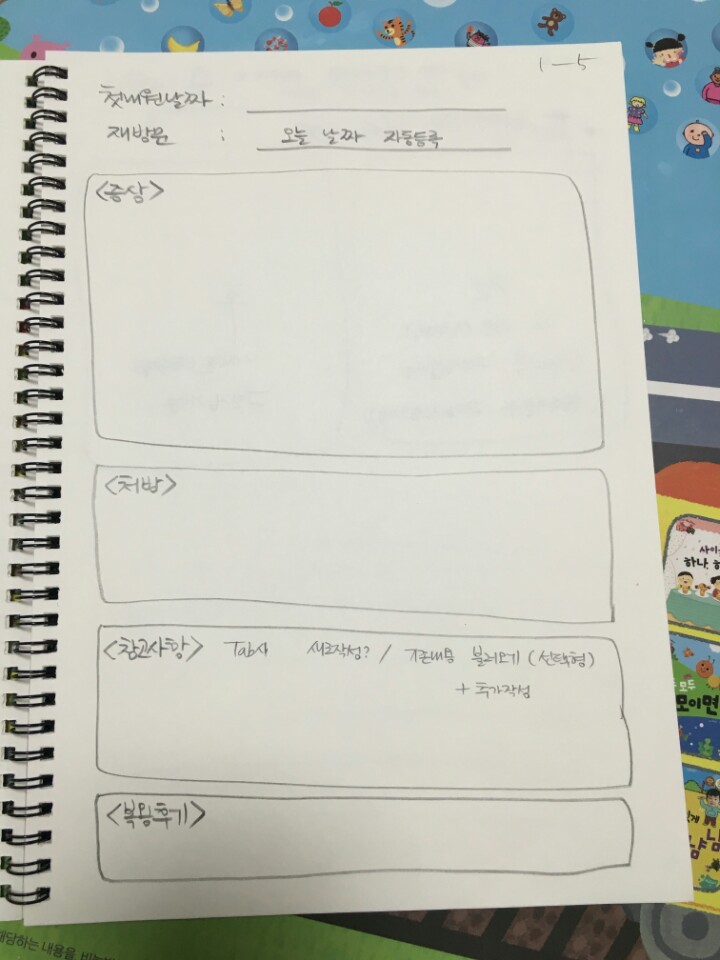 1-5
첫내원날짜 :
재방문 : 오늘 날짜 자동등록
<증상>
<처방>
<참고사항> Tab시 새로작성? / 기존내용 불러오기 (선택형)
+ 추가작성
<복용후기>
사이
하나, 하
모두
모이면
냠
해당하는 내용을